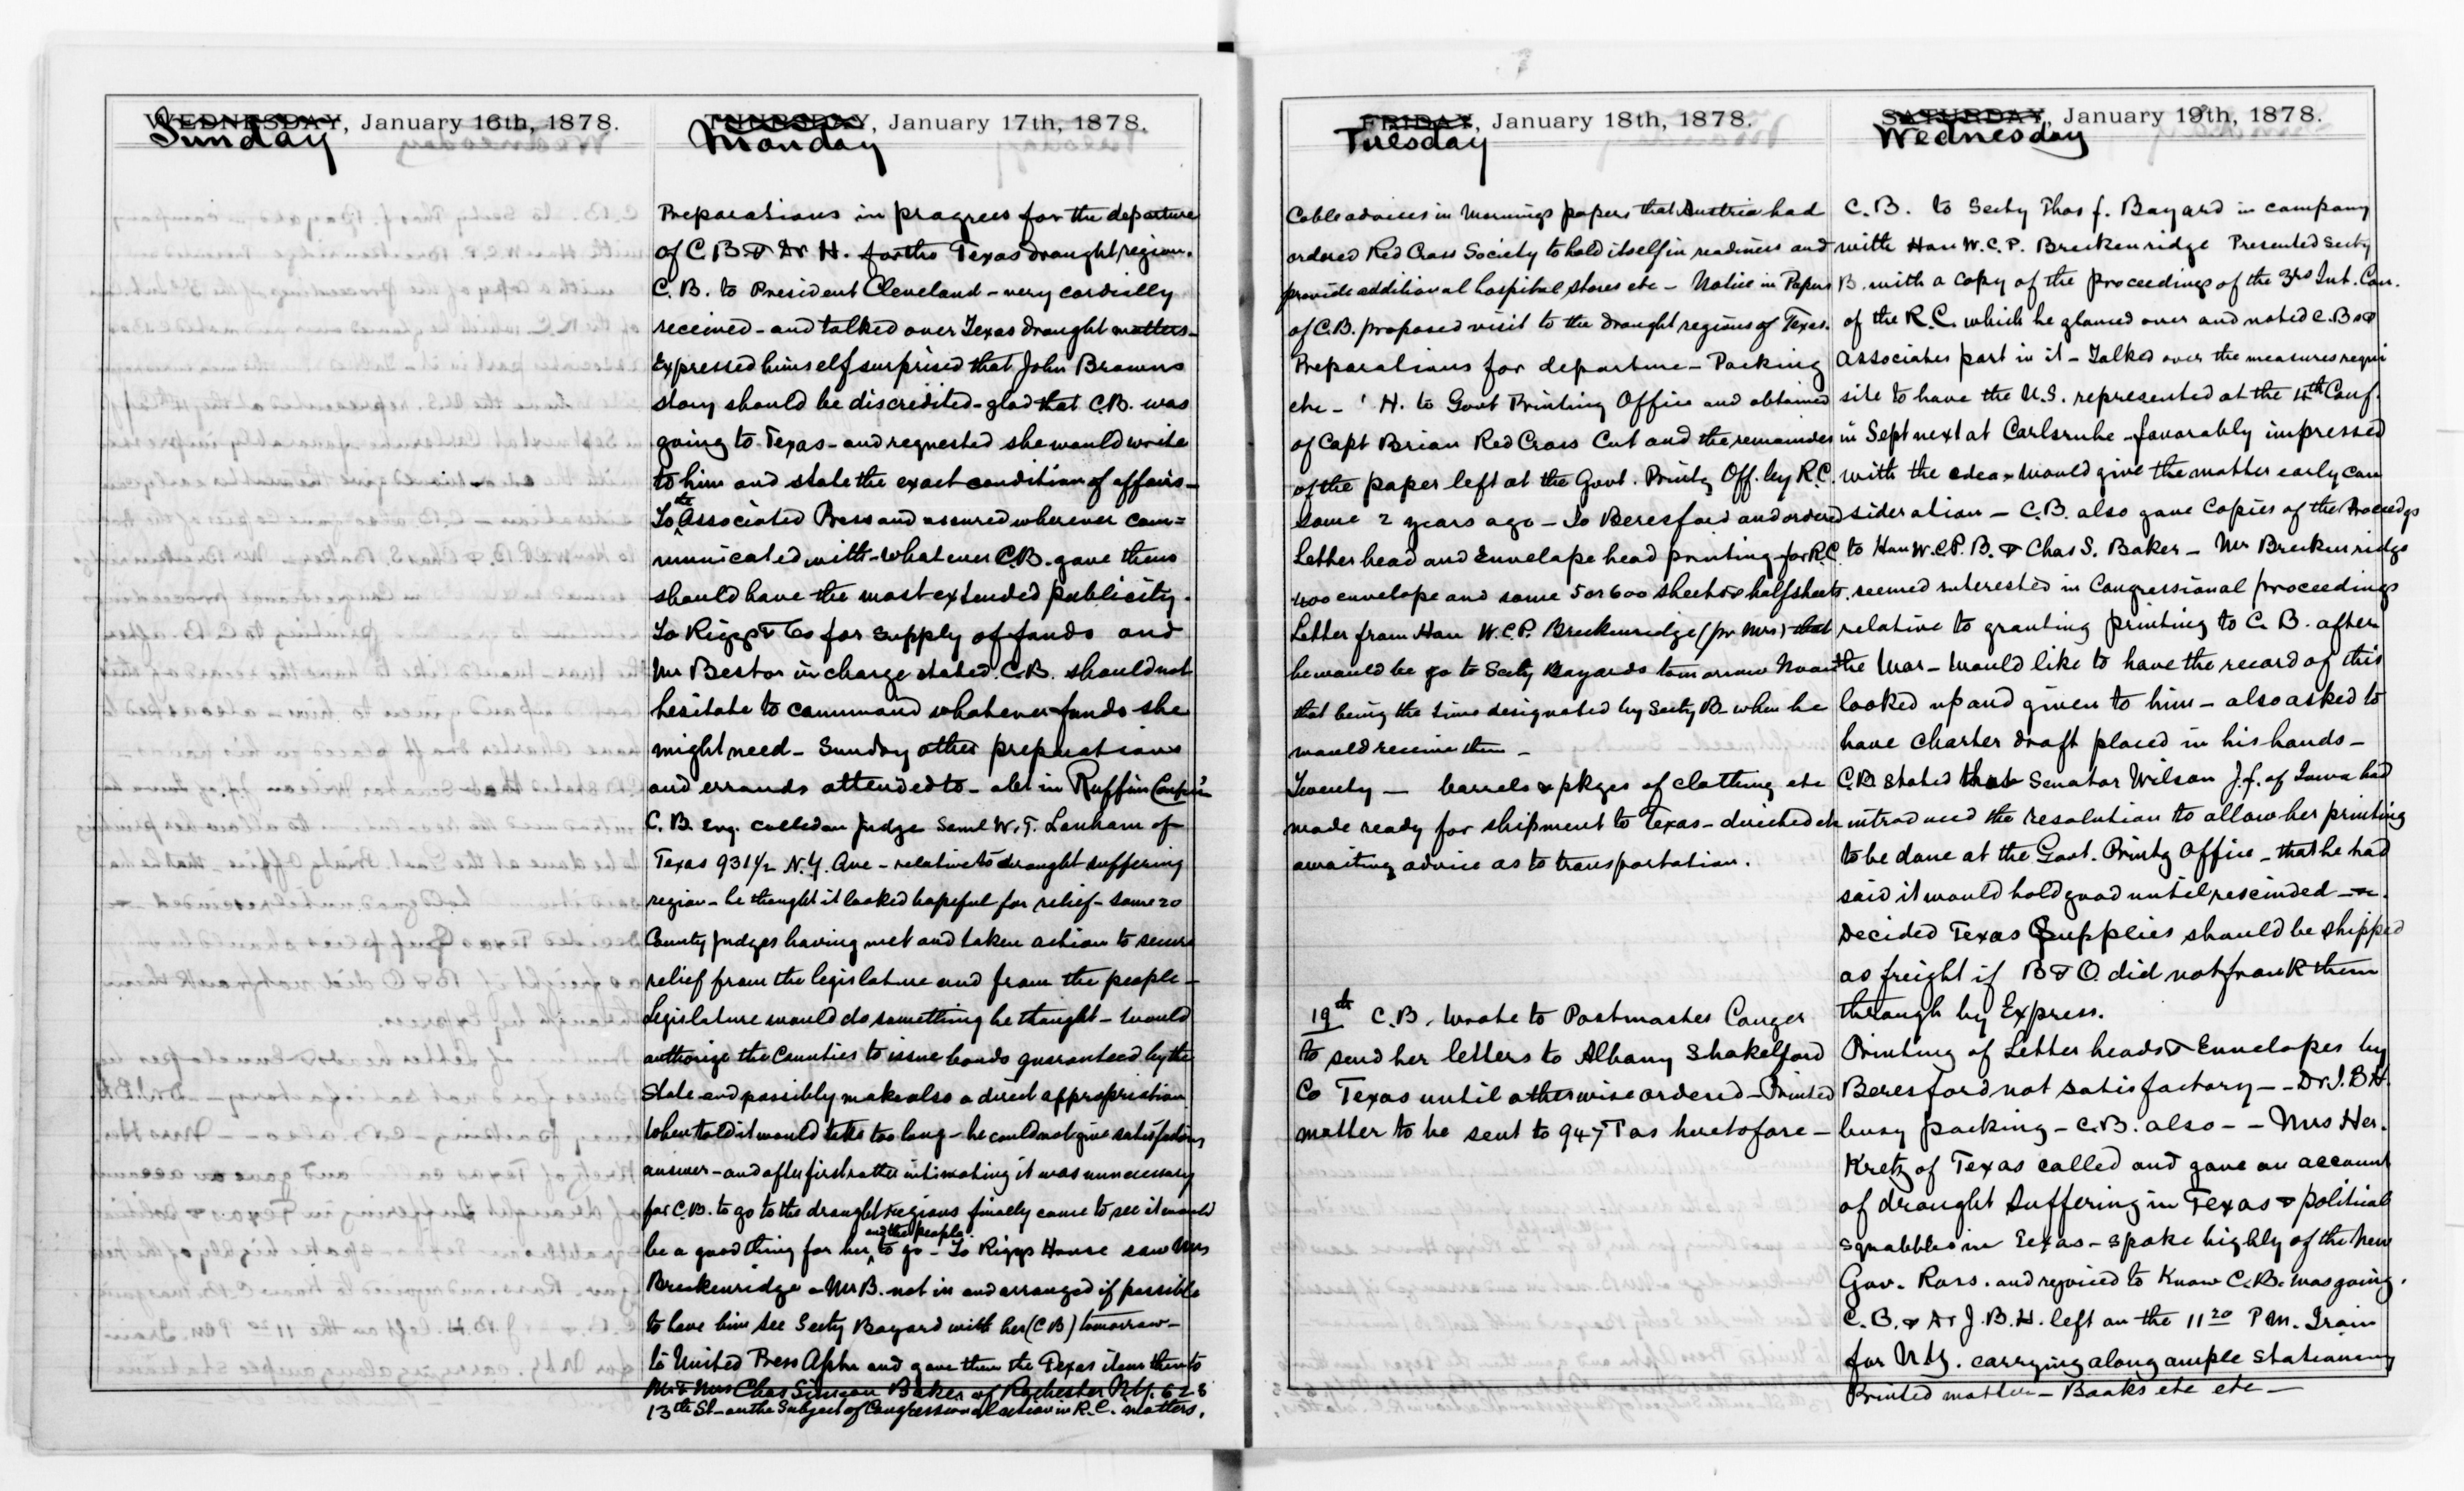 WEDNESDAY, January 16th, 1878.
Sunday
THURSDAY, January 17th, 1878.
Monday
Preparations in progress for the departure
of C B & Dr H. for the Texas drought region.
C. B. to President Cleveland - very cordially
received - and talked over Texas drought matters -
Expressed himself surprised that John Browns
story should be discredited - glad that C.B. was
going to Texas - and requested she would write
to him and state the exact condition of affairs -
To the Associated Press and assured wherever com=
municated with - whatever C.B. gave them
should have the most extended publicity.
To Riggs & Co for supply of funds and
Mr Bestor in charge stated C.B. should not
hesitate to command whatever funds she
might need - Sunday other preparations
and errands attended to - also in Ruffin
C. B. Evg. called on Judge Saml W. T. Lanham of
Texas 931 1/2 N.Y. Ave - relative to drought suffering
region - he thought it looked hopeful for relief - some 20
County Judges having met and taken action to secure
relief from the legislature and from the people -
Legislature would do something he thought - would
authorize the Counties to issue bonds guaranteed by the
State and possibly make also a direct appropriation
When told it would take too long - he could not give satisfactory
answer - and after first rather intimating it was unnecessary
for C.B. to go to the drought regions finally came to see it would
be a good thing for her and the people to go - To Riggs House saw Mrs
Breckenridge - Mr B. not in and arranged if possible
to have him see Secty Bayard with her (CB) tomorrow -
to United Press and gave them the Texas item then to
Mr & Mrs Chas Simeon Baker of Rochester N.Y. 628
13th St - on the Subject of Congressional action in R.C. matters.
FRIDAY, January 18th, 1878.
Tuesday
Cable advices in Mornings papers that Austria had
ordered Red Cross Society to hold itself in readiness and
provide additional hospital stores etc - Notice in Papers
of C.B. proposed visit to the drought regions of Texas.
Preparations for departure - Packing
etc - H. to Govt Printing Office and obtained
of Capt Brian Red Cross Cut and the remainder
of the paper left at the Govt. Printg Off. by R.C.
some 2 years ago - To Beresford and ordered
Letter head and Envelope head printing for R.C.
400 envelope and some 5 or 600 sheets & half sheets
Letter from Hon W.C.P. Breckenridge (pr Mrs) that
he would be go to Secty Bayards tomorrow Noon
that being the time designated by Secty B. when he
would receive them -
Twenty - barrels & pkges of clothing etc
made ready for shipment to Texas - directed etc
awaiting advice as to transportation.
19th C.B. wrote to Postmaster Conger
to send her letters to Albany Shakelford
Co Texas until otherwise ordered - Printed
matter to be sent to 947 T as heretofore -
SATURDAY, January 19th, 1878.
Wednesday
C. B. to Secty Thos f. Bayard in company
with Hon W. C. P. Breckenridge Presented Secty
B. with a copy of the proceedings of the 3rd Int. Con.
of the R.C. which he glanced over and noted C.B. &
Associates part in it - Talked over the measures requi
site to have the U.S. represented at the 4th Conf.
in Sept next at Carlsruhe - favorably impressed
with the idea - would give the matter early con
sideration - C.B. also gave Copies of the Proceedgs
to Hon W.C.P. B. & Chas S. Baker - Mr Breckenridge
seemed interested in Congressional proceedings
relative to granting printing to C. B. after
the War - Would like to have the record of this
looked up and given to him - also asked to
have Charter draft placed in his hands -
C.B. stated that Senator Wilson J.f. of Iowa had
introduced the resolution to allow her printing
to be done at the Govt. Printg Office - that he had
said it would hold good until rescinded -
Decided Texas Supplies should be shipped
as freight if B & O. did not frank them
through by Express.
Printing of Letter heads & Envelopes by
Beresford not satisfactory - - Dr J. B H
busy packing - C.B. also - - Mrs Her.
Kretz of Texas called and gave an account
of drought suffering in Texas & political
squabbles in Texas - spoke highly of the new
Gov. Ross. and rejoiced to know C.B. was going.
C. B. & Dr J. B. H. left on the 11 20 P M. Train
for N.Y. carrying along ample stationery
Printed matter - Books etc etc -